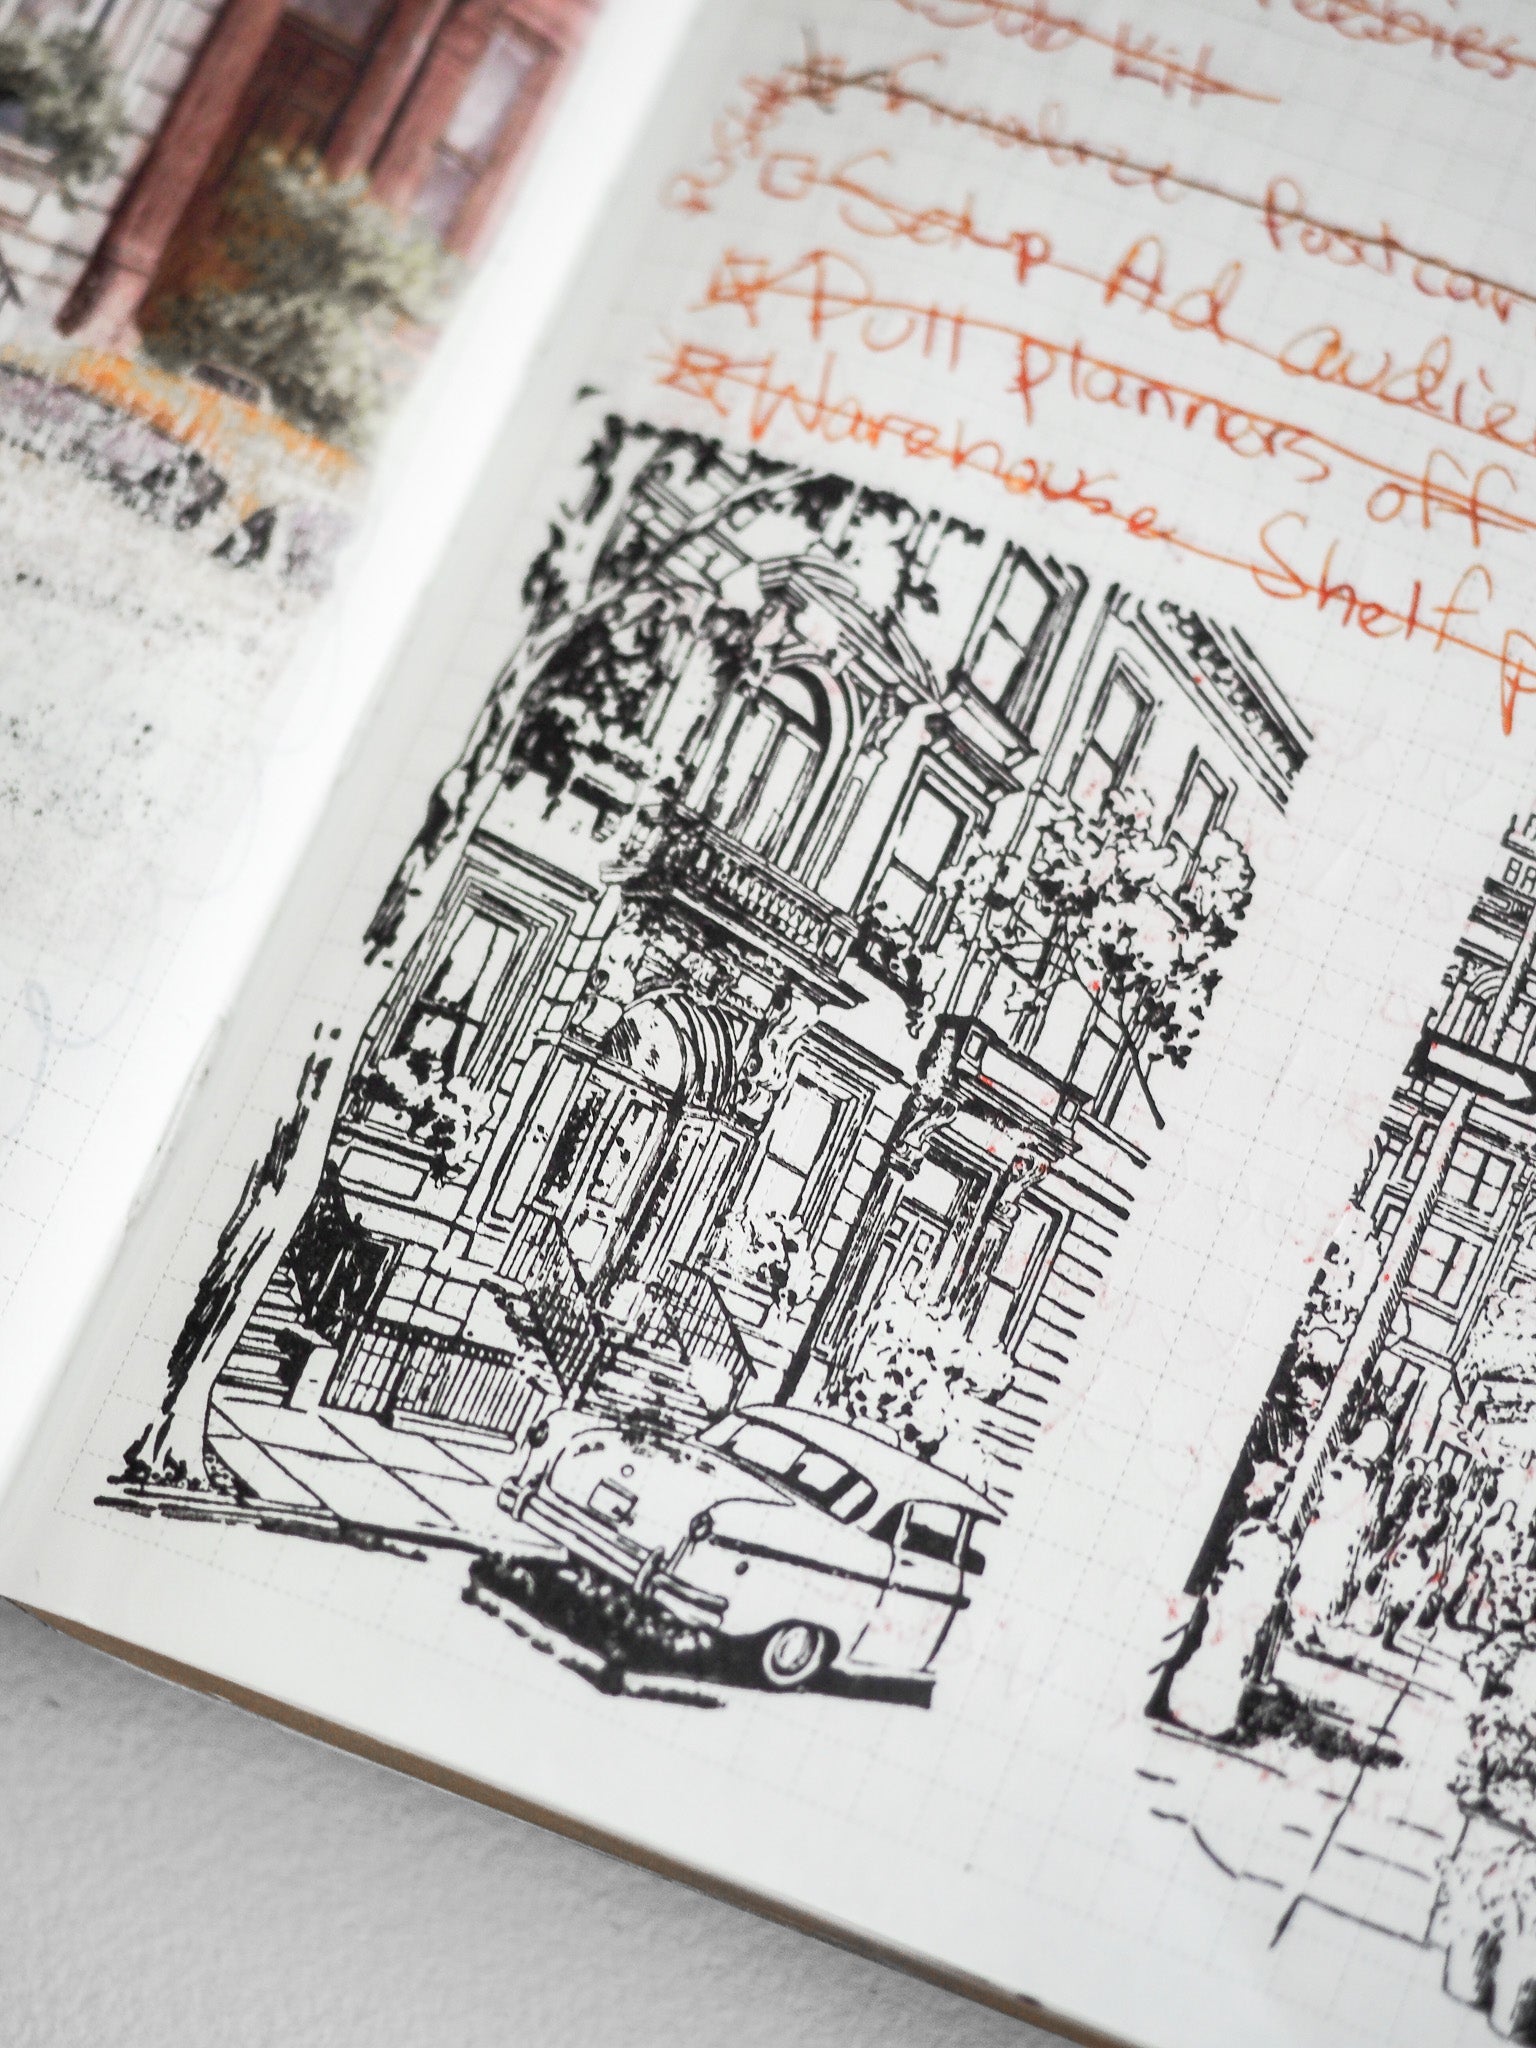 Kit
Finalize Postcar
Push
Setup Ad audie
Pull planners off
Warehouse Shelf P